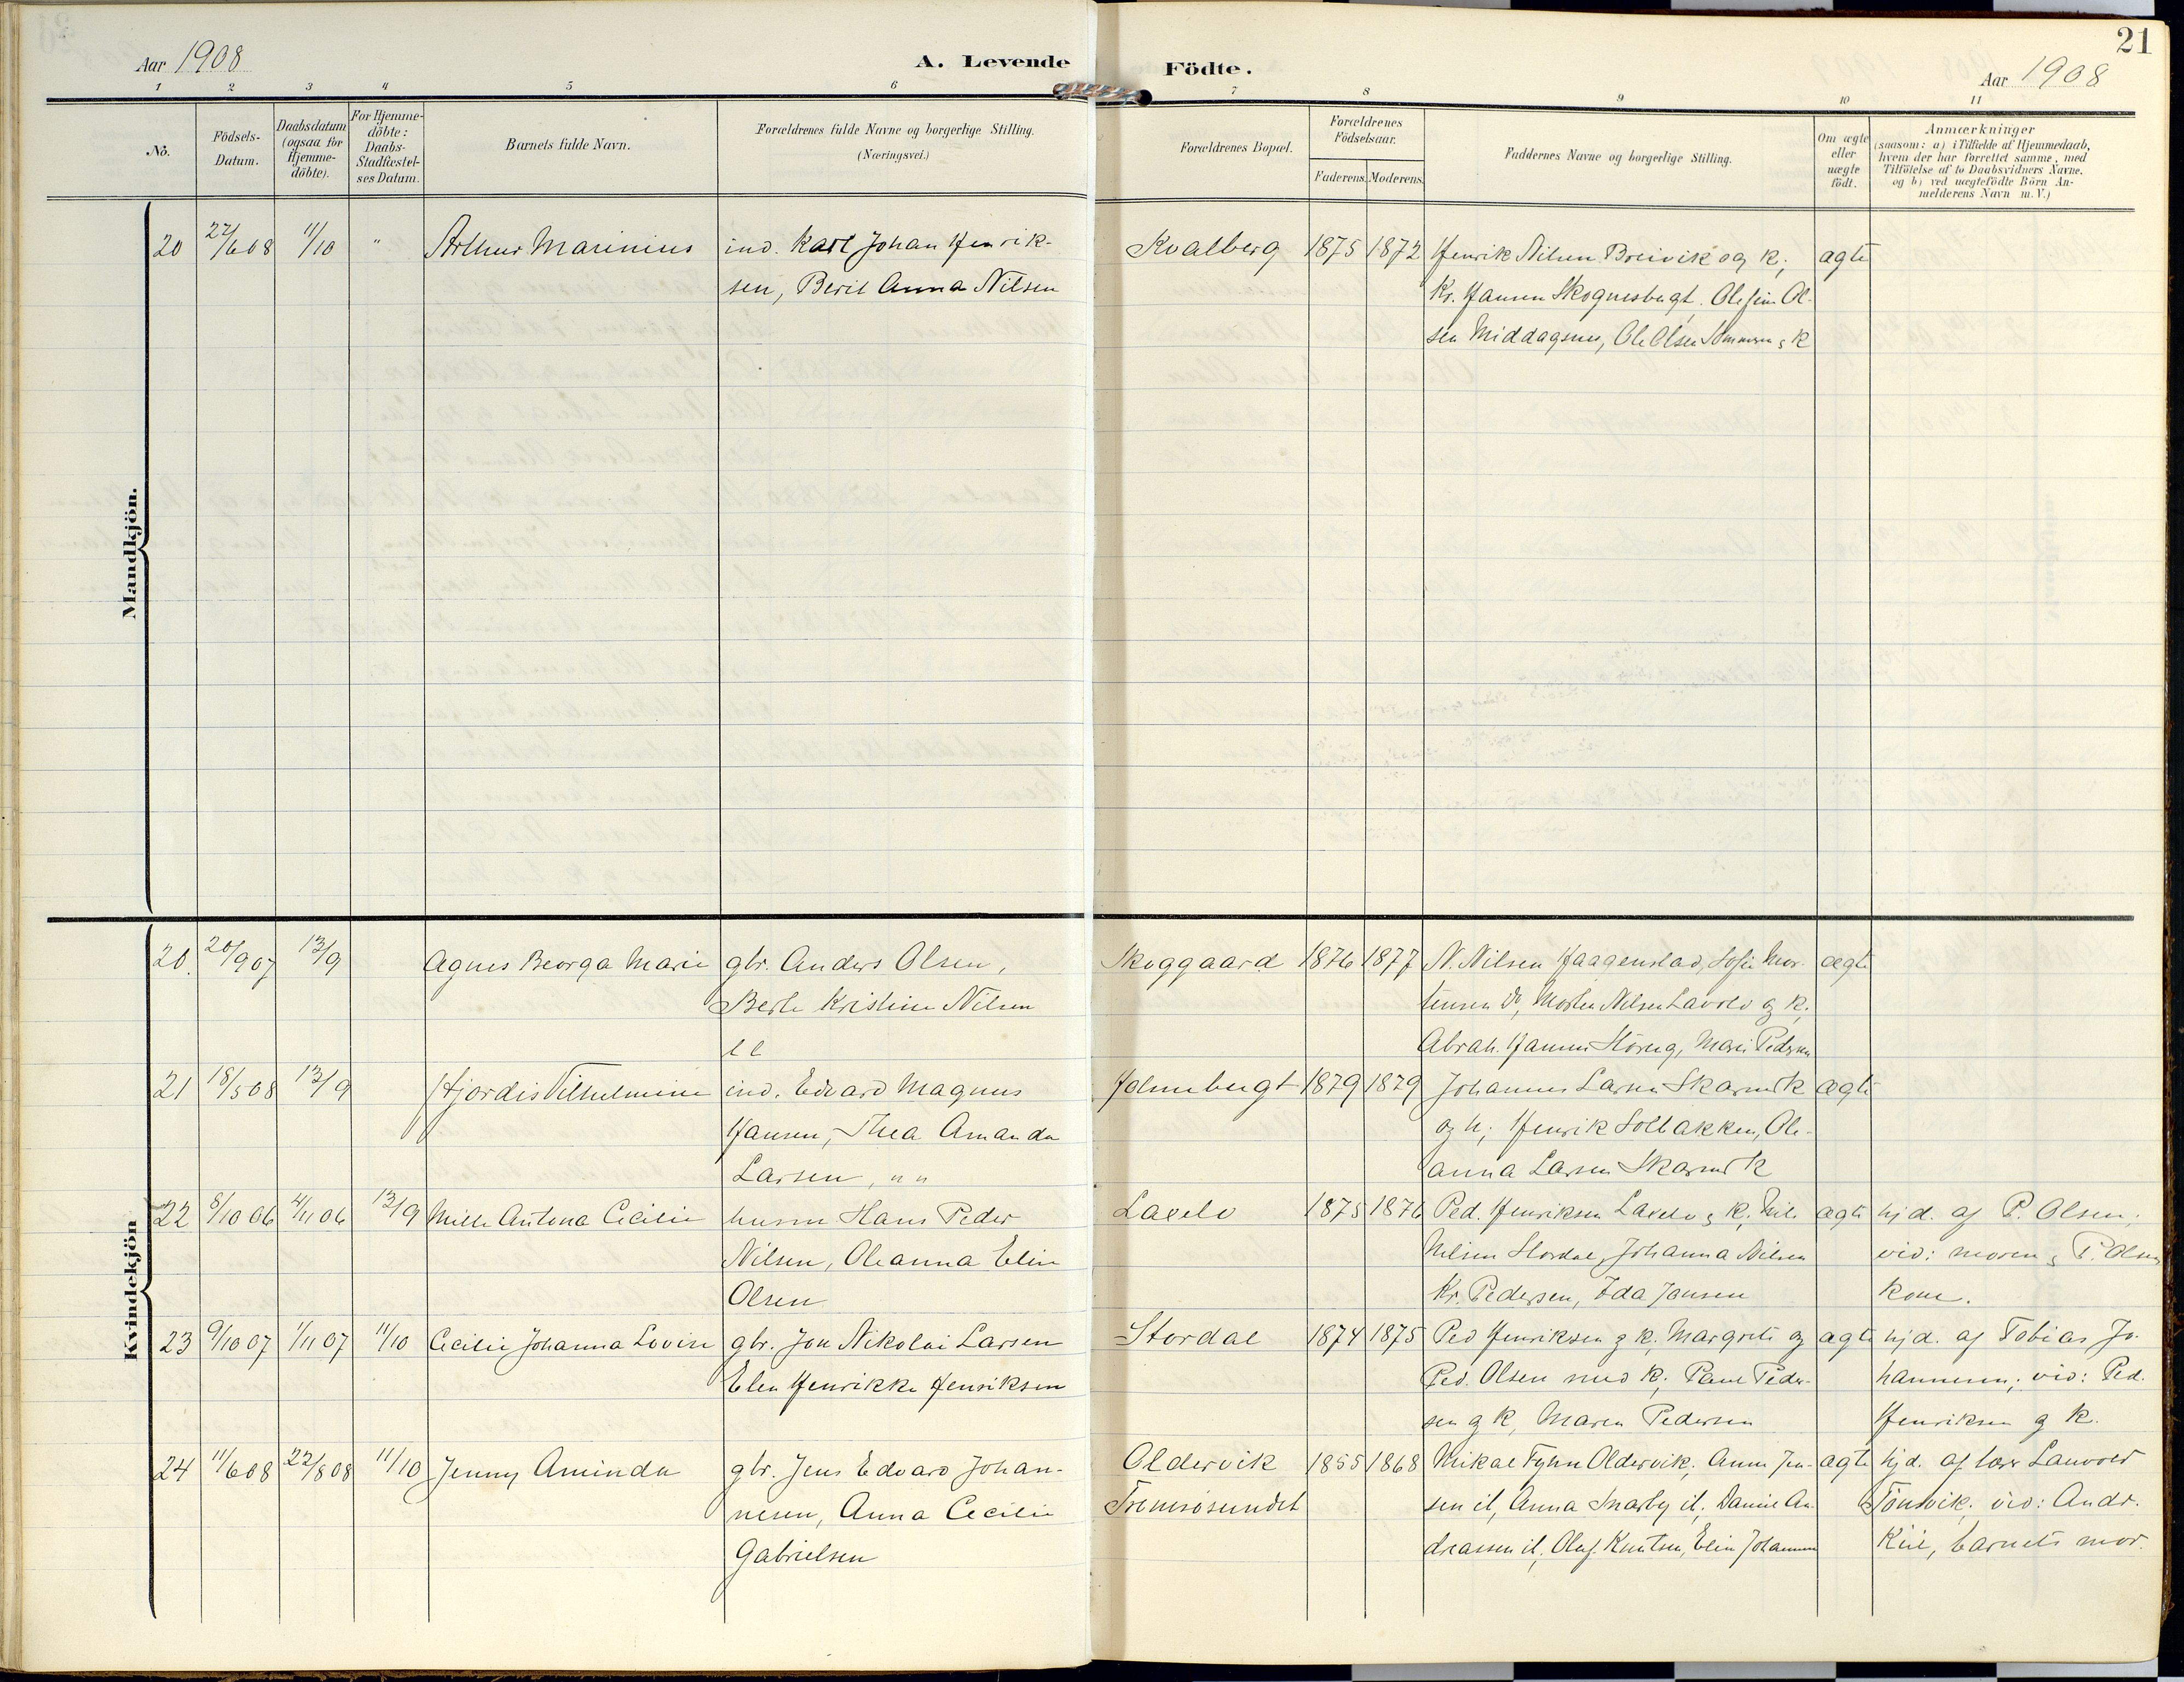 21
Aar 1908
A. Levende Födte.
Aar 1908
1 2 3 4 5 6 7 8 9 10 11
No.
Födsels-Datum.
Daabsdatum (ogsaa for Hjemme-döbte).
For Hjemme-döbte: Daabs-Stadfæstel-ses Datum.
Barnets fulde Navn.
Forældrenes fulde Navne og borgerlige Stilling.
(Næringsvei.)
Forældrenes Bopæl.
Forældrenes Födselsaar.
Faderens. Moderens.
Faddernes Navne og borgerlige Stilling.
Om ægte eller uægte födt.
Anmærkninger
(saasom: a) i Tilfælde af Hjemmedaab,
hvem der har forrettet samme, med
Tilföielse af to Daabsvidners Navne,
og b) ved uægtefödte Börn An-
melderens Navn m. V.)
Mandkjön.
20 27/6 08 11/10 " Arthur Marinius ind. Karl Johan Henrik- Kvalberg 1875 1872 Henrik Nilsen Breivik og k; ægte
sen, Berit Anna Nilsen Kr. Hansen Skognesbugt. Ole Sim Ol-
sen Middagsnes, Ole Olsen & k
Kvindekjön
20. 20/9 07 13/9 Agnes Beorga Marie gbr. Anders Olsen, Skoggaard 1876 1877 N. Nilsen Haagenstad, Sofie Mor- ægte
Berte Kristine Nilsen tensen do, Morten Nilsen Laxelv og k;
Abrah. Hansen Störeng, Marie Pedersen
21 18/5 08 13/9 Hjordis Vilhelmine ind. Edvard Magnus Holmebugt 1879 1879 Johannes Larsen Skarmsk ægte
Hansen, Thea Amanda og h; Henrik Solbakken, Ole-
Larsen, " " anna Larsen Skarmsk
22 8/10 06 4/11 06 13/9 Mille Antona Cecilie husm Hans Peder Laxelv 1875 1876 Ped. Henriksen Laxelv & k; Nils ægte hjd. af P. Olsen;
Nilsen, Oleanna Elin Nilsen Stordal, Johanna Nilsen vid: moren & P. Olsens
Olsen Kr. Pedersen, Ida Jansen kone.
23 9/10 07 1/11 07 11/10 Cecilie Johanna Lovise gbr. Jon Nikolai Larsen Stordal 1874 1875 Ped Henriksen g k; Margrete og ægte hjd. af Tobias Jo-
Elen Henrikke Henriksen Ped. Olsen med k; Paul Peder- hannesen; vid: Ped.
sen g k, Maren Pedersen Henriksen g k.
24 11/6 08 22/8 08 11/10 Jenny Aminda gbr. Jens Edvard Johan- Oldervik 1855 1868 Mikal Fyhn Oldervik; Anna Jen- ægte hjd. af lær Lauvold
nesen, Anna Cecilie Tromsösundet sen il, Anna Snarby il, Daniel An- Tönsvik; vid: Andr.
Gabrielsen dreassen il, Oluf Knutsen, Elin Johannesen Kiil, barnets mor.